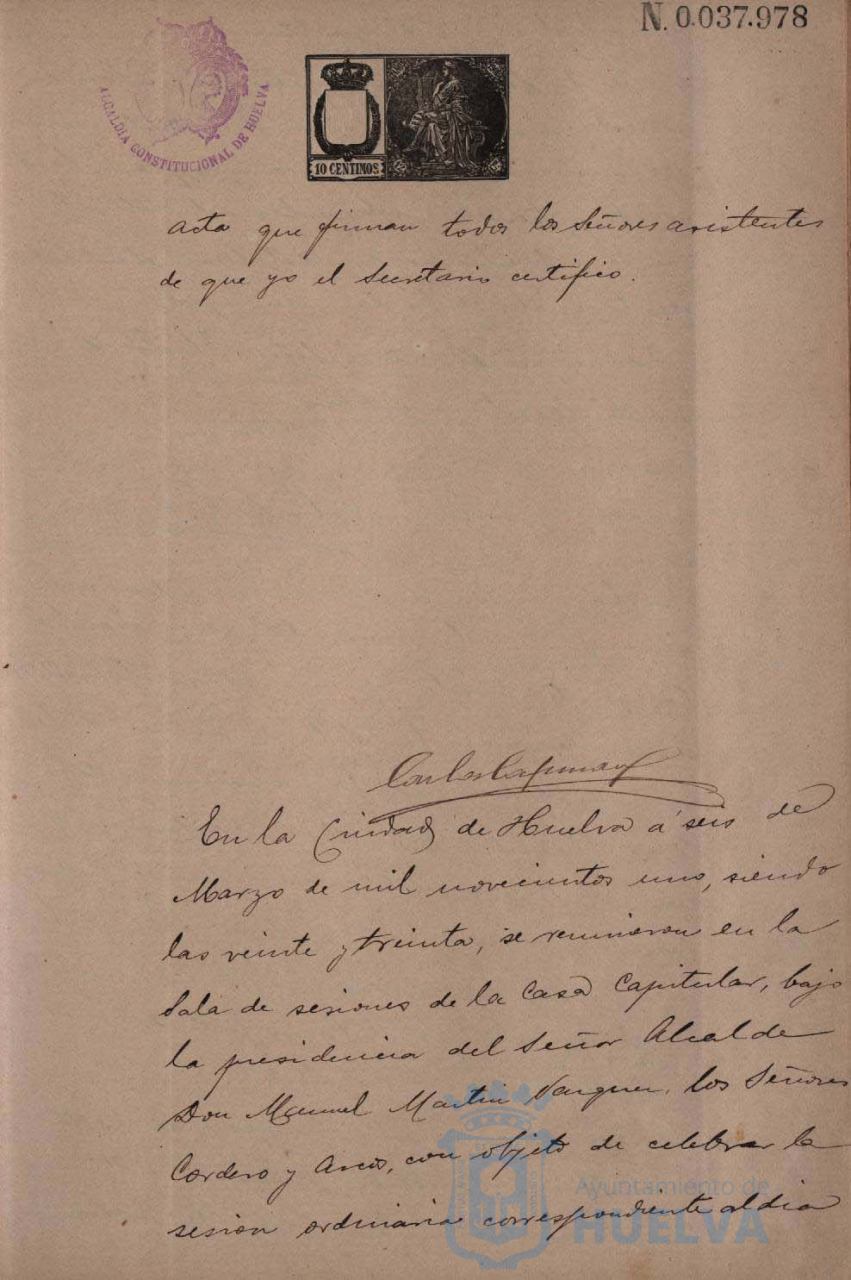 N. 0.037.978
ALCALDIA CONSTITUCIONAL DE HUELVA
10 CENTIMOS
acta que firman todos los Señores asistentes
de que yo el Secretario certifico.
Carlos
En la Ciudad de Huelva á seis de
Marzo de mil novecientos uno, siendo
las veinte y treinta, se reunieron en la
Sala de sesiones de la Casa Capitular, bajo
la presidencia del Señor Alcalde
Don Manuel Martin Vazquez, los Señores
Cordero y Arcos, con objeto de celebrar la
sesion ordinaria correspondiente al dia
Ayuntamiento de
HUELVA